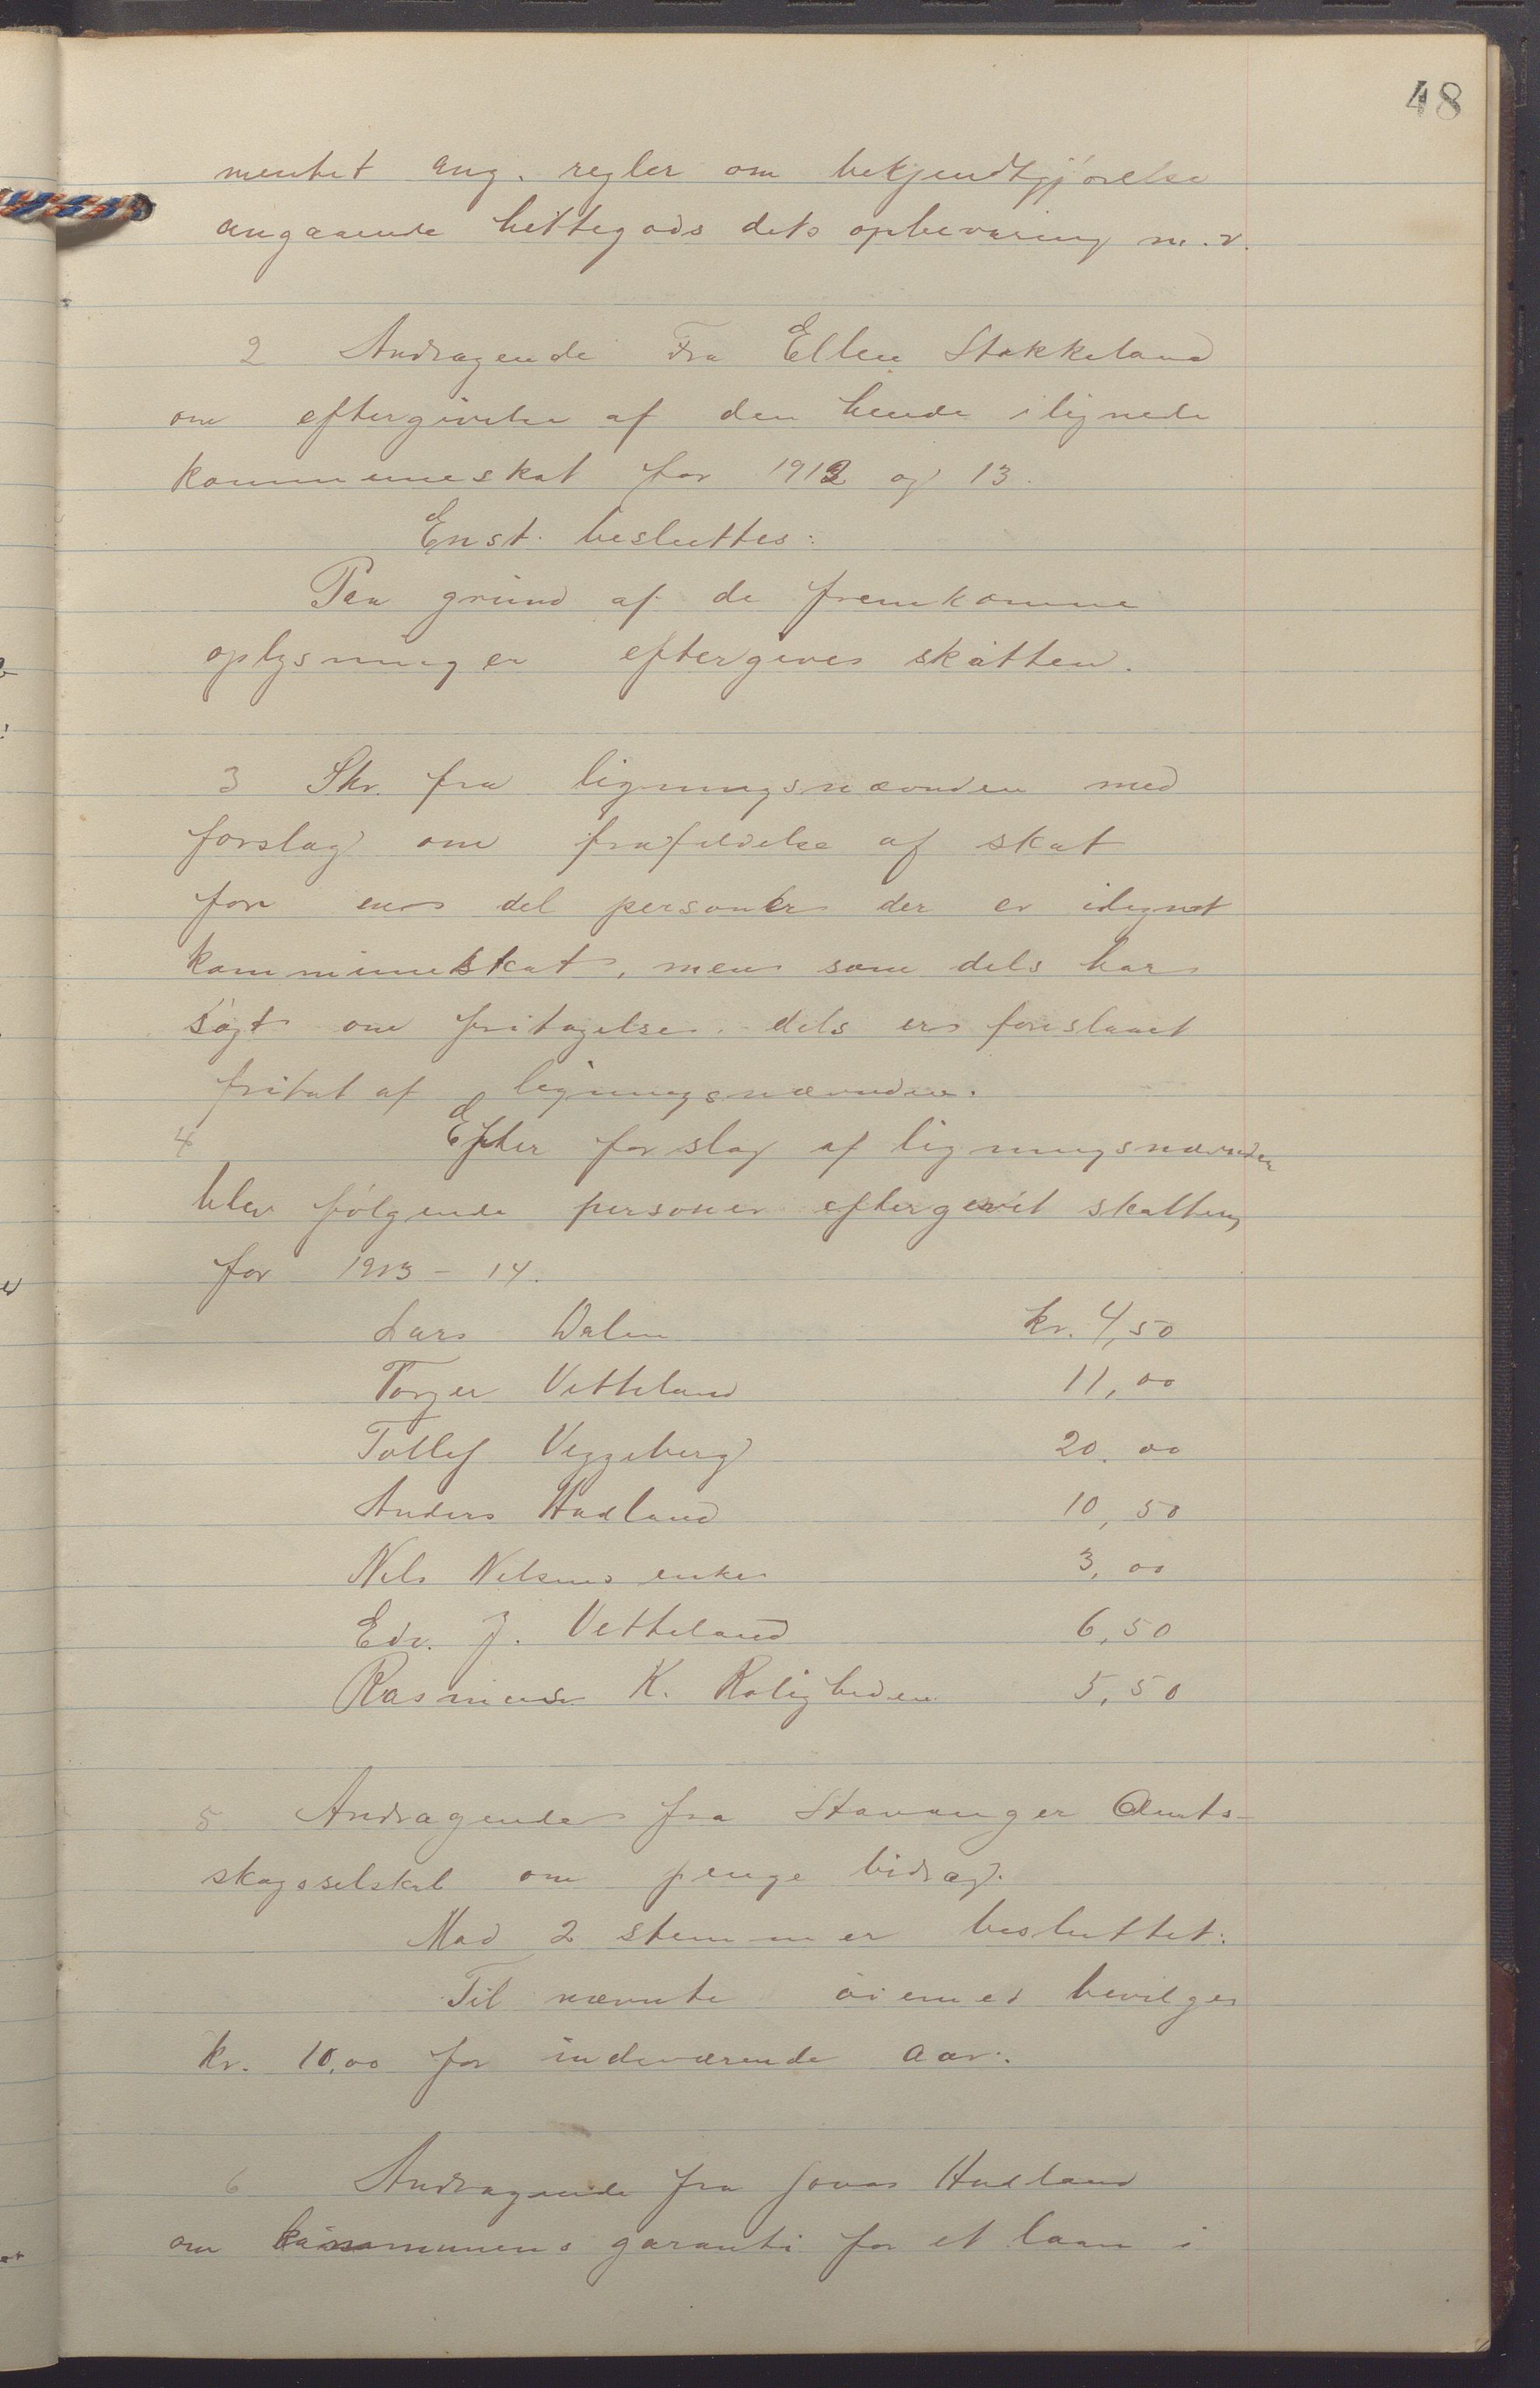 48
mentet ang. regler om bekjendtgjørelse
angaaende hittegods dets opbevaring m.v.
2 Andragende Fra Ellen Stokkeland
om eftergivelse af den hende ilignede
kommuneskat for 1912 og 13.
Enst. besluttes:
Paa grund af de fremkomne
oplysninger eftergives skatten.
3 Skr. fra ligningsnævnden med
forslag om frafaldelse af skat
for en del personer der er ilignet
kommuneskat, men som dels har
søgt om fritagelse dels er foreslaaet
fritat af ligningsnævnden.
4 Efter forslag af ligningsnævnden
blev følgende personer eftergevit skatten
for 1913-14.
Lars Dalen kr. 4,50
Torger Vetteland 11,00
Tollef Veggeberg 20.00
Anders Hadland 10,50
Nels Nelsens enke 3,00
Edv. J. Vetteland 6,50
Rasmus K. Roligheden 5,50
5 Andragende fra Stavanger Amts-
skogsselskab om penge bidrag.
Mod 2 stemmer besluttet:
Til nævnte øiemed bevilges
kr. 10,00 for indeværende aar.
6 Andragende fra Jonas Hadland
om kommunens garanti for et laan i